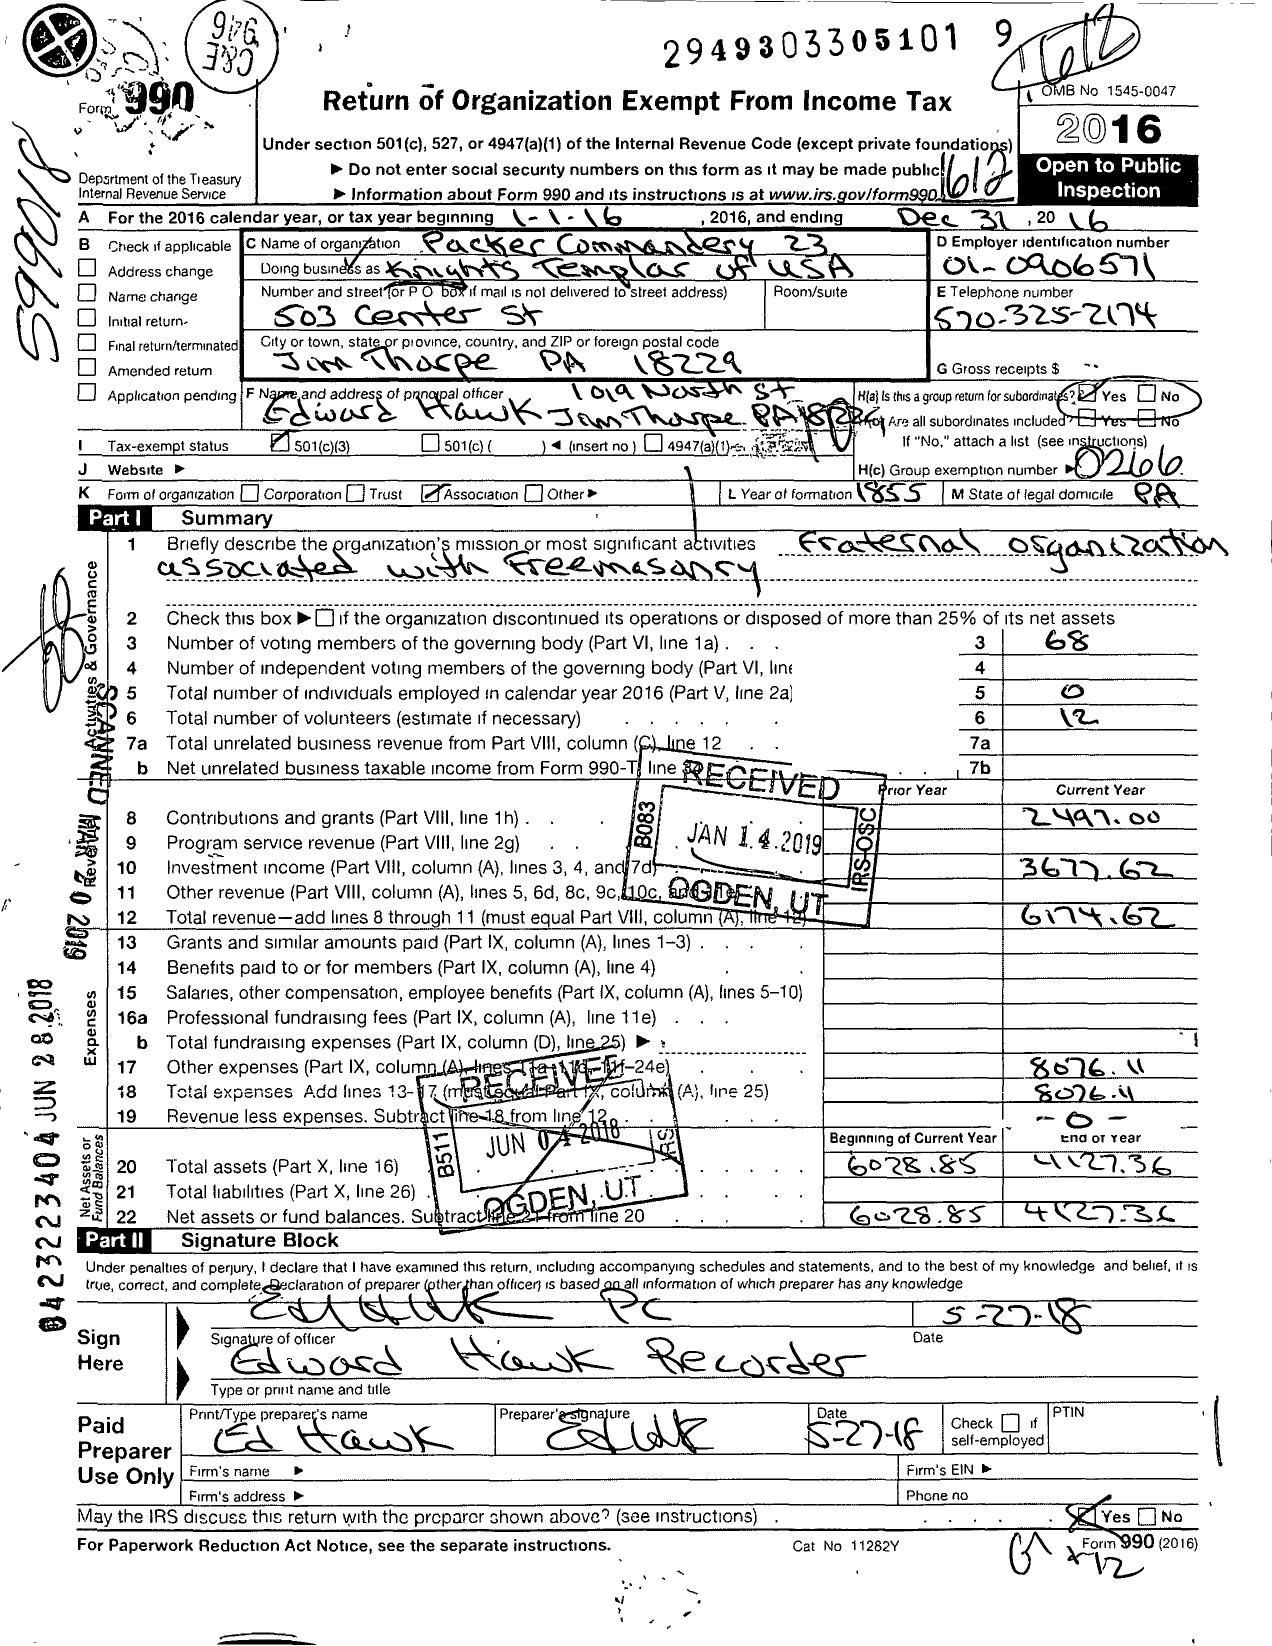 2949303305101 9
C&E 946
1612
Form 990
Return of Organization Exempt From Income Tax
OMB No 1545-0047
2016
Under section 501(c), 527, or 4947(a)(1) of the Internal Revenue Code (except private foundations)
Department of the Treasury
Internal Revenue Service
► Do not enter social security numbers on this form as it may be made public
► Information about Form 990 and its instructions is at www.irs.gov/form990.
1612
Open to Public
Inspection
A For the 2016 calendar year, or tax year beginning 1-1-16 , 2016, and ending Dec 31 , 20 16
B Check if applicable
Address change
Name change
Initial return
Final return/terminated
Amended return
Application pending
C Name of organization Packer Commandery 23
Doing business as Knights Templar of USA
Number and street (or P O box if mail is not delivered to street address) Room/suite
503 Center St
City or town, state or province, country, and ZIP or foreign postal code
Jim Thorpe PA 18229
D Employer identification number
01-0906571
E Telephone number
570-325-2174
G Gross receipts $
F Name and address of principal officer 1019 North St
Edward Hawk Jim Thorpe PA
H(a) Is this a group return for subordinates? Yes No
Are all subordinates included? Yes No
If "No," attach a list (see instructions)
H(c) Group exemption number ► 0266
I Tax-exempt status 501(c)(3) 501(c) ( ) ◄ (insert no) 4947(a)(1)
J Website ►
K Form of organization Corporation Trust Association Other ►
L Year of formation 1855
M State of legal domicile PA
Part I Summary
1 Briefly describe the organization's mission or most significant activities Fraternal organization
associated with Freemasonry
2 Check this box ► if the organization discontinued its operations or disposed of more than 25% of its net assets
3 Number of voting members of the governing body (Part VI, line 1a) . . . 3 68
4 Number of independent voting members of the governing body (Part VI, line 4
5 Total number of individuals employed in calendar year 2016 (Part V, line 2a) 5 0
6 Total number of volunteers (estimate if necessary) 6 12
7a Total unrelated business revenue from Part VIII, column (C), line 12 7a
b Net unrelated business taxable income from Form 990-T, line 34 7b
Prior Year Current Year
8 Contributions and grants (Part VIII, line 1h) . 2497.00
9 Program service revenue (Part VIII, line 2g)
10 Investment income (Part VIII, column (A), lines 3, 4, and 7d) 3677.62
11 Other revenue (Part VIII, column (A), lines 5, 6d, 8c, 9c, 10c, and 11e)
12 Total revenue—add lines 8 through 11 (must equal Part VIII, column (A), line 12) 6174.62
13 Grants and similar amounts paid (Part IX, column (A), lines 1–3) . . .
14 Benefits paid to or for members (Part IX, column (A), line 4)
15 Salaries, other compensation, employee benefits (Part IX, column (A), lines 5–10)
16a Professional fundraising fees (Part IX, column (A), line 11e) . . .
b Total fundraising expenses (Part IX, column (D), line 25) ►
17 Other expenses (Part IX, column (A), lines 11a–11d, 11f–24e) 8076.11
18 Total expenses Add lines 13–17 (must equal Part IX, column (A), line 25) 8076.11
19 Revenue less expenses. Subtract line 18 from line 12 -0-
Beginning of Current Year End of Year
20 Total assets (Part X, line 16) 6028.85 4127.36
21 Total liabilities (Part X, line 26)
22 Net assets or fund balances. Subtract line 21 from line 20 6028.85 4127.36
Activities & Governance
Revenue
Expenses
Net Assets or
Fund Balances
RECEIVED
B083
JAN 14 2019
IRS-OSC
OGDEN, UT
RECEIVED
B511
JUN 04 2018
IRS
OGDEN, UT
599018
SCANNED MAR 20 2019
04232223404 JUN 28 2018
Part II Signature Block
Under penalties of perjury, I declare that I have examined this return, including accompanying schedules and statements, and to the best of my knowledge and belief, it is
true, correct, and complete. Declaration of preparer (other than officer) is based on all information of which preparer has any knowledge
Sign
Here
Ed Hawk PC 5-27-18
Signature of officer Date
Edward Hawk Recorder
Type or print name and title
Paid
Preparer
Use Only
Print/Type preparer's name Preparer's signature Date Check if self-employed PTIN
Ed Hawk Ed Hawk 5-27-18
Firm's name ► Firm's EIN ►
Firm's address ► Phone no
May the IRS discuss this return with the preparer shown above? (see instructions) . . . . . Yes No
For Paperwork Reduction Act Notice, see the separate instructions. Cat No 11282Y Form 990 (2016)
12